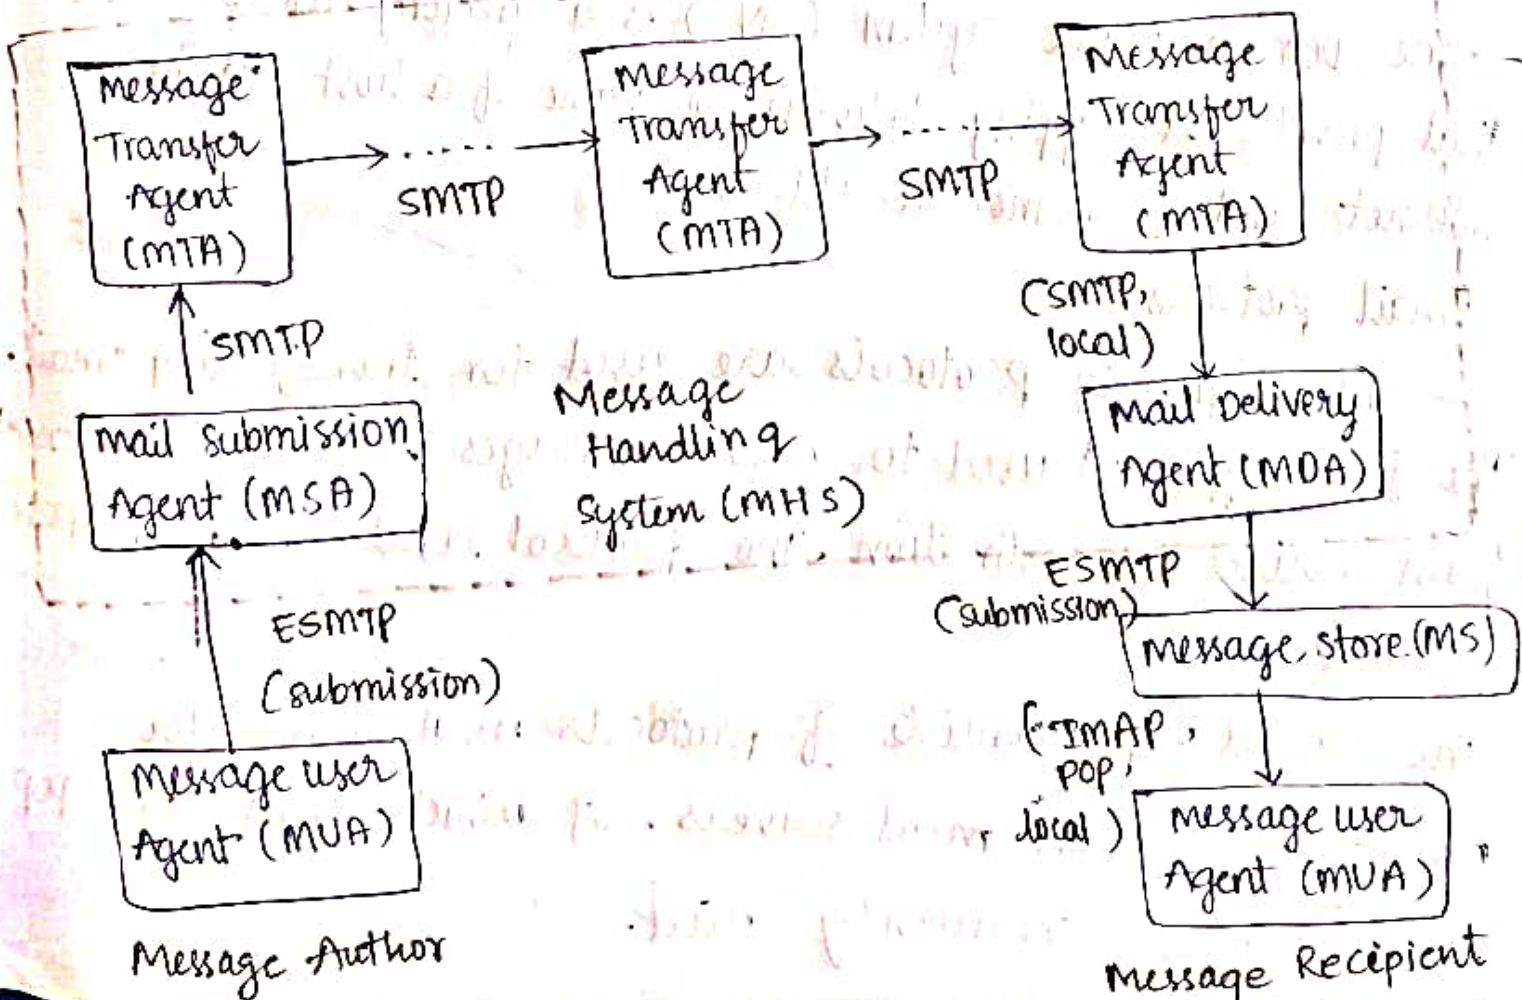 Message
Transfer
Agent
(MTA)
SMTP
Message
Transfer
Agent
(MTA)
SMTP
Message
Transfer
Agent
(MTA)
SMTP
(SMTP,
local)
Mail Submission
Agent (MSA)
Message
Handling
System (MHS)
Mail Delivery
Agent (MDA)
ESMTP
(submission)
ESMTP
(submission)
Message store (MS)
(IMAP,
POP,
local)
Message user
Agent (MUA)
Message user
Agent (MUA)
Message Author
Message Recipient